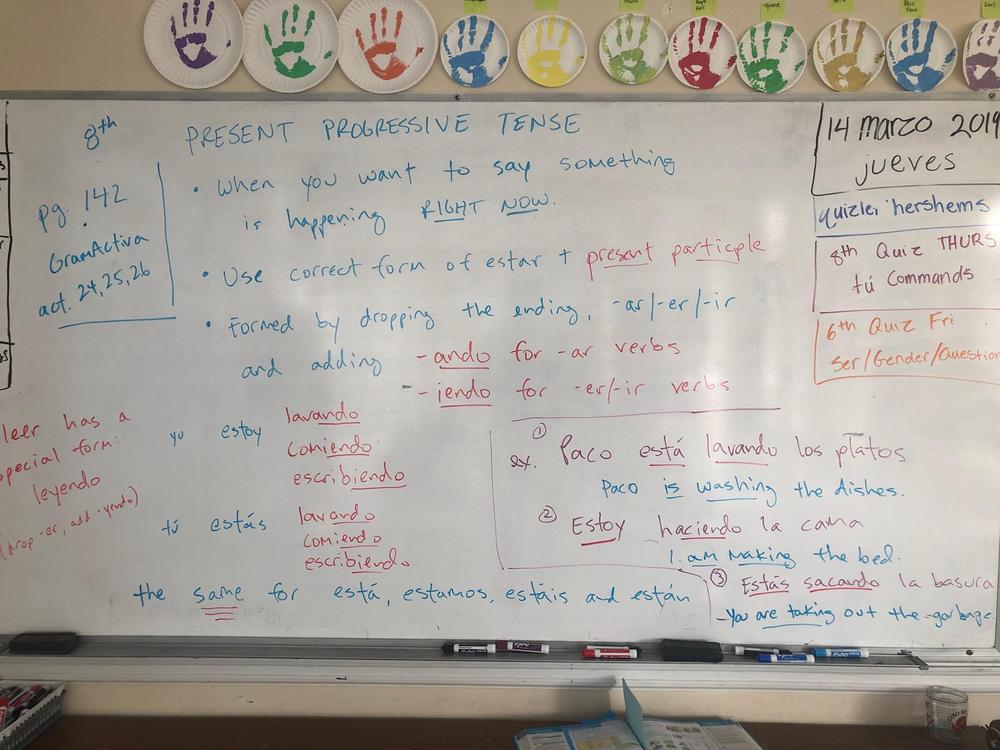 8th
pg. 142
GramActiva
act. 24,25,26
PRESENT PROGRESSIVE TENSE
• When you want to say something
is happening RIGHT NOW.
• Use correct form of estar + present participle
• Formed by dropping the ending, -ar/-er/-ir
and adding -ando for -ar verbs
-iendo for -er/-ir verbs
14 marzo 2019
jueves
quizlet hershems
8th Quiz THURS
tú Commands
6th Quiz Fri
Ser/Gender/Question
leer has a
special form:
leyendo
(drop -er, add -yendo)
yo estoy lavando
comiendo
escribiendo
tú estás lavando
comiendo
escribiendo
the same for está, estamos, estáis and están
ex. ① Paco está lavando los platos
Paco is washing the dishes.
② Estoy haciendo la cama
I am making the bed.
③ Estás sacando la basura
-You are taking out the garbage.